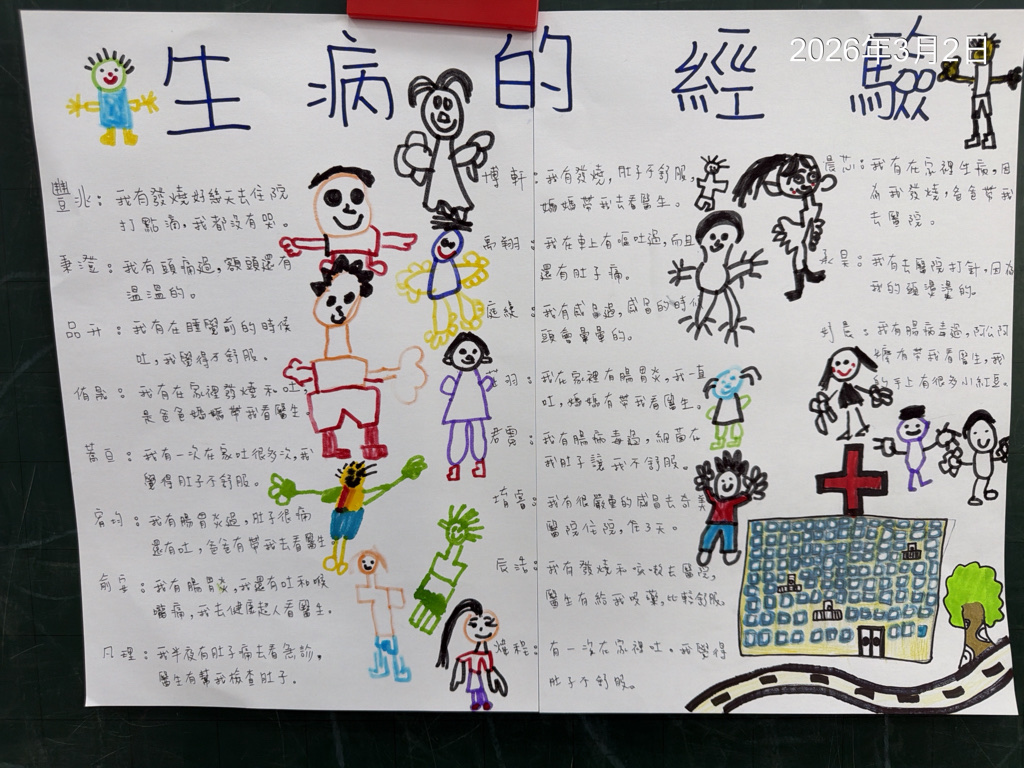 生病的經驗
2026年3月2日
豐兆：我有發燒好幾天去住院
打點滴，我都沒有哭。
秉澄：我有頭痛過，額頭還有
溫溫的。
品卉：我有在睡覺前的時候
吐，我覺得不舒服。
侑晟：我有在家裡發燒和吐，
是爸爸媽媽帶我看醫生
：我有一次在家吐很多次，我
覺得肚子不舒服。
宥均：我有腸胃炎過，肚子很痛
還有吐，爸爸有帶我去看醫生
俞安：我有腸胃炎，我還有吐和喉
嚨痛，我去健康超人看醫生。
凡理：我半夜有肚子痛去看急診，
醫生有幫我檢查肚子。
博軒：我有發燒，肚子不舒服，
媽媽帶我去看醫生。
禹翔：我在車上有嘔吐過，而且
還有肚子痛。
庭緹：我有感冒過，感冒的時候
頭會暈暈的。
羽：我在家裡有腸胃炎，我一直
吐，媽媽有帶我看醫生。
君：我有腸病毒過，細菌在
我肚子讓我不舒服。
睿：我有很嚴重的感冒去奇美
醫院住院，住了3天。
辰浩：我有發燒和咳嗽去醫院，
醫生有給我吸藥，比較舒服。
程：有一次在家裡吐，我覺得
肚子不舒服。
晨芯：我有在家裡生病，因
為我發燒，爸爸帶我
去醫院。
永昊：我有去醫院打針，因為
我的頭燙燙的。
晨：我有腸病毒過，阿公阿
嬤有帶我看醫生，我
的手上有很多小紅豆。